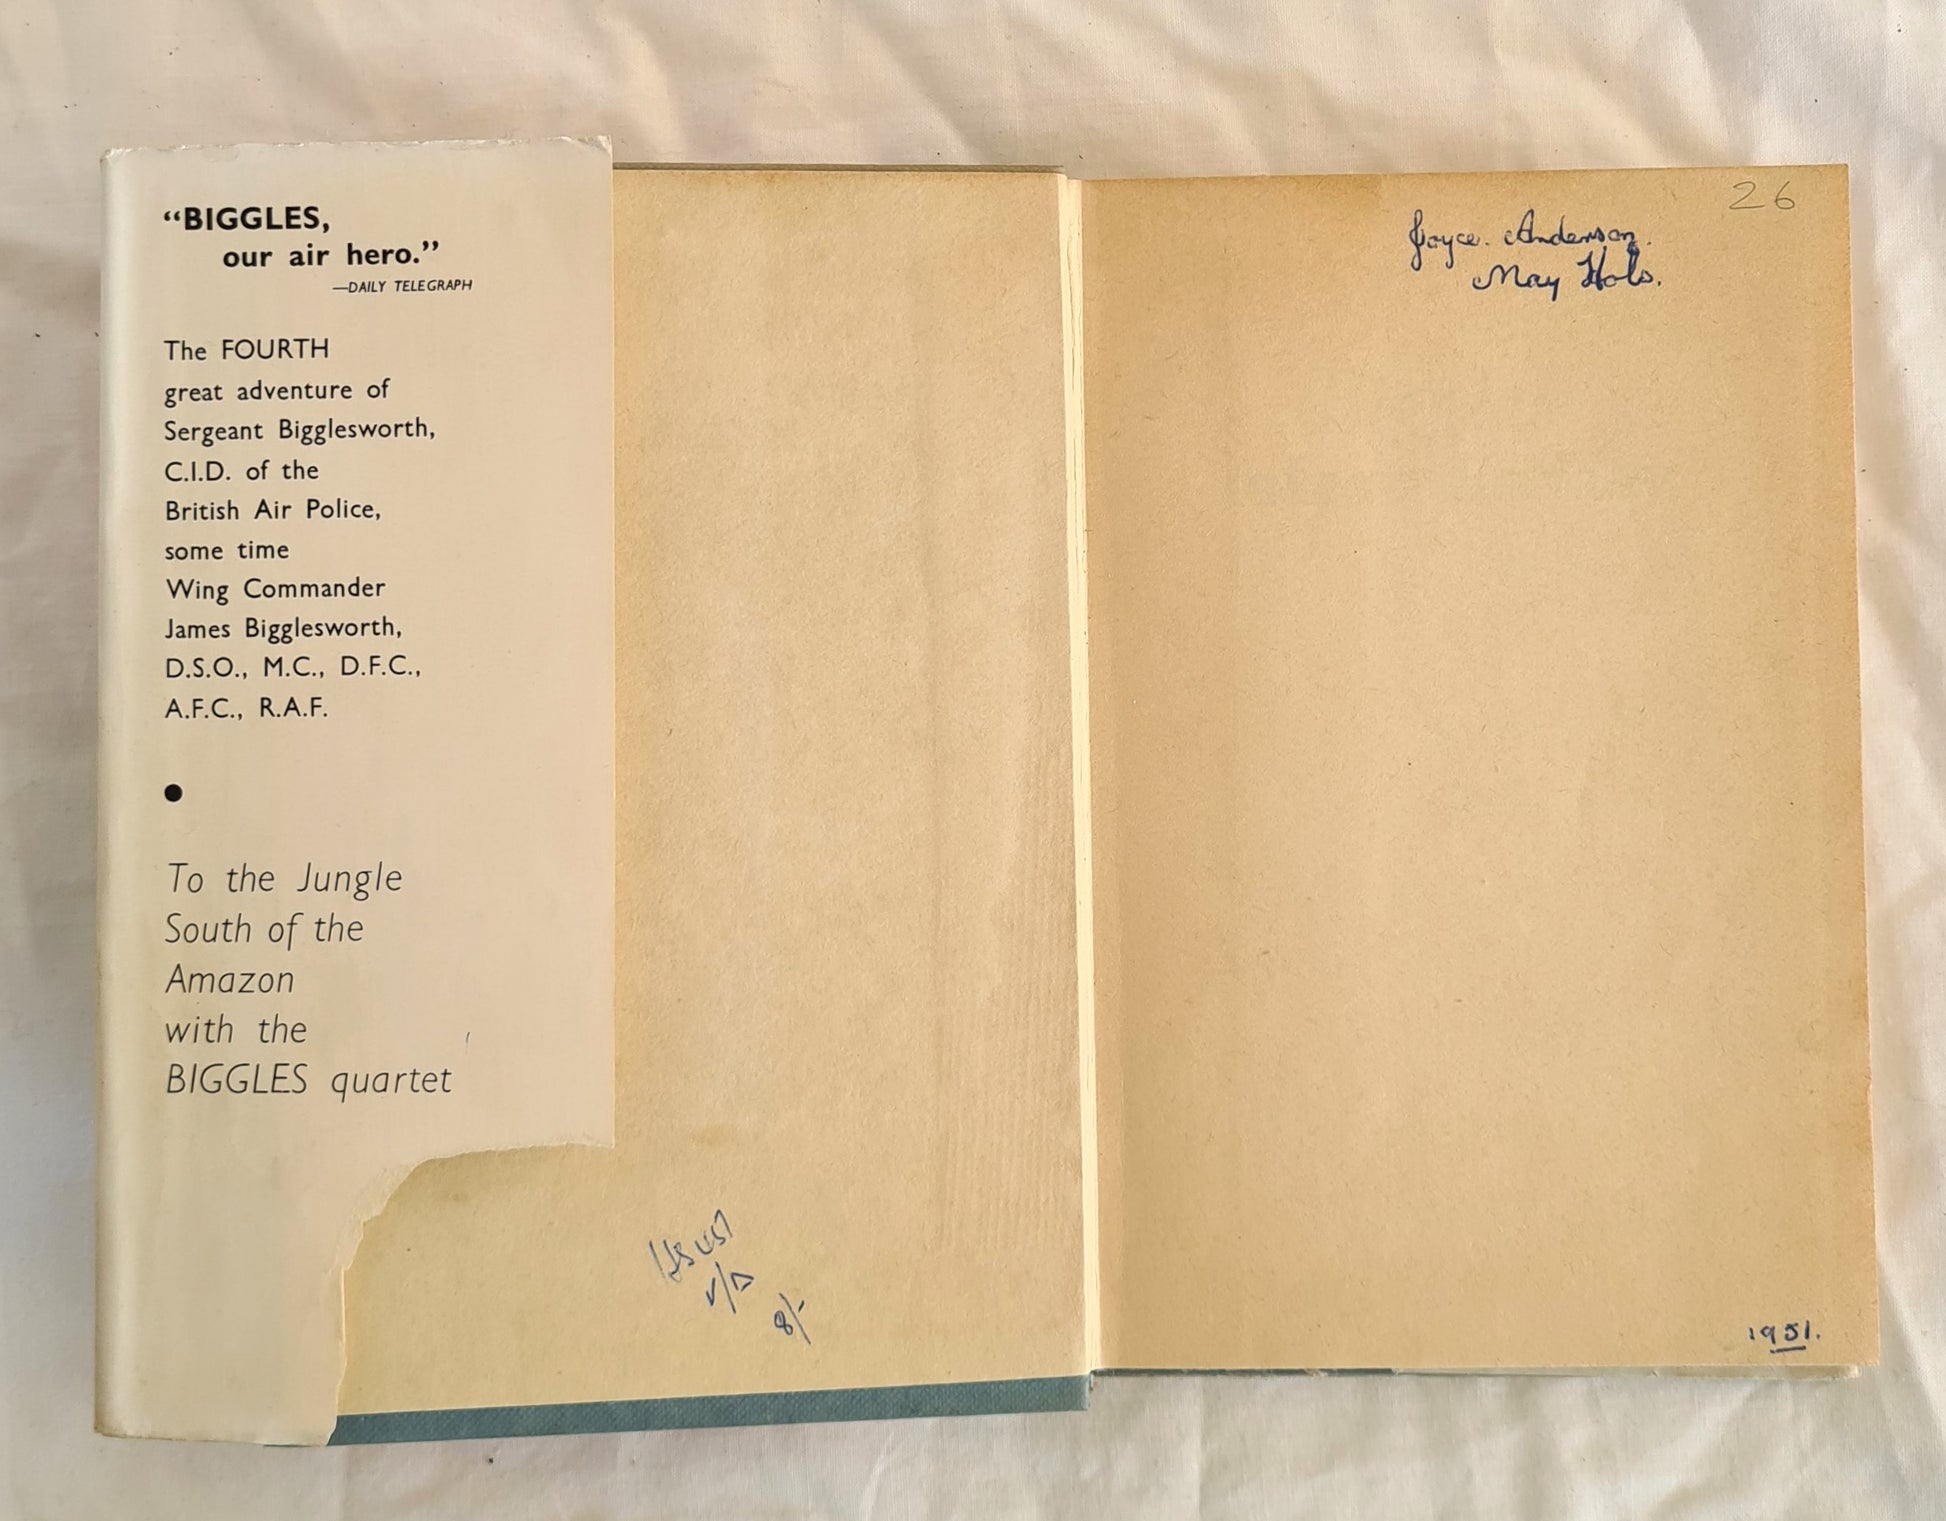 “BIGGLES,
our air hero.”
—DAILY TELEGRAPH
The FOURTH
great adventure of
Sergeant Bigglesworth,
C.I.D. of the
British Air Police,
some time
Wing Commander
James Bigglesworth,
D.S.O., M.C., D.F.C.,
A.F.C., R.A.F.
●
To the Jungle
South of the
Amazon
with the
BIGGLES quartet
8/-
26
Joyce. Anderson.
May Hols.
1951.